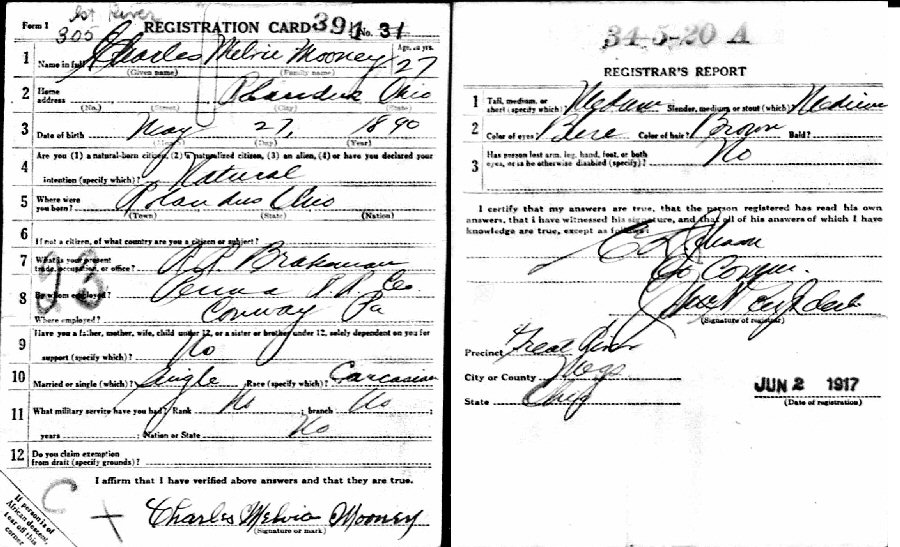 1st River
Form 1 305 REGISTRATION CARD 391 No. 31
1 Name in full Charles Melvin Mooney Age, in yrs. 27
(Given name) (Family name)
2 Home address Ohio
(No.) (Street) (City) (State)
3 Date of birth May 27, 1890
(Month) (Day) (Year)
4 Are you (1) a natural-born citizen, (2) a naturalized citizen, (3) an alien, (4) or have you declared your
intention (specify which)? Natural
5 Where were you born? Ohio
(Town) (State) (Nation)
6 If not a citizen, of what country are you a citizen or subject?
7 What is your present trade, occupation, or office? R.R. Brakeman
93
8 By whom employed? Penna R R Co
Where employed? Conway Pa
9 Have you a father, mother, wife, child under 12, or a sister or brother under 12, solely dependent on you for
support (specify which)? No
10 Married or single (which)? Single Race (specify which)? Carcasian
11 What military service have you had? Rank No ; branch No ;
years ; Nation or State No
12 Do you claim exemption from draft (specify grounds)?
I affirm that I have verified above answers and that they are true.
C +
Charles Melvin Mooney
(Signature or mark)
If person is of
African descent,
tear off this
corner
34-5-20 A
REGISTRAR'S REPORT
1 Tall, medium, or short (specify which)? Medium Slender, medium, or stout (which)? Medium
2 Color of eyes? Blue Color of hair? Brown Bald?
3 Has person lost arm, leg, hand, foot, or both eyes, or is he otherwise disabled (specify)? No
I certify that my answers are true, that the person registered has read his own
answers, that I have witnessed his signature, and that all of his answers of which I have
knowledge are true, except as follows:
(Signature of registrar)
Precinct
City or County Meigs
State Ohio
JUN 2 1917
(Date of registration)